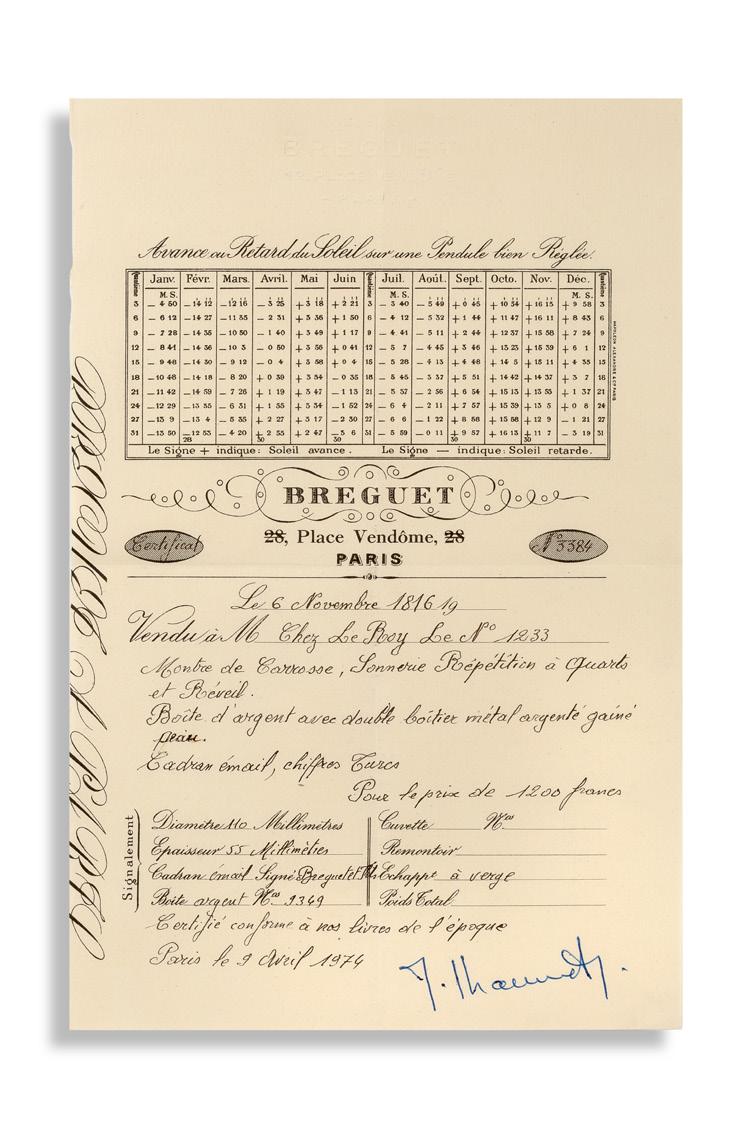 BREGUET
Avance ou Retard du Soleil sur une Pendule bien Réglée.
Quantième Janv. Févr. Mars. Avril. Mai Juin Quantième Juil. Août. Sept. Octo. Nov. Déc. Quantième
M. S. M. S. M. S.
3 — 4 50 — 14 12 — 12 16 — 3 25 + 3 18 + 2 21 3 — 3 40 — 5 49 + 0 45 + 10 54 + 16 15 + 9 58 3
6 — 6 12 — 14 27 — 11 35 — 2 31 + 3 36 + 1 50 6 — 4 12 — 5 32 + 1 44 + 11 47 + 16 11 + 8 43 6
9 — 7 28 — 14 35 — 10 50 — 1 40 + 3 49 + 1 17 9 — 4 41 — 5 11 + 2 44 + 12 37 + 15 58 + 7 24 9
12 — 8 41 — 14 36 — 10 3 — 0 50 + 3 56 + 0 41 12 — 5 7 — 4 45 + 3 46 + 13 23 + 15 39 + 6 1 12
15 — 9 48 — 14 30 — 9 12 — 0 4 + 3 58 + 0 4 15 — 5 28 — 4 13 + 4 48 + 14 5 + 15 11 + 4 35 15
18 — 10 48 — 14 18 — 8 20 + 0 39 + 3 54 — 0 35 18 — 5 45 — 3 37 + 5 51 + 14 42 + 14 37 + 3 7 18
21 — 11 42 — 14 59 — 7 26 + 1 19 + 3 47 — 1 13 21 — 5 57 — 2 56 + 6 54 + 15 14 + 13 55 + 1 37 21
24 — 12 29 — 13 35 — 6 31 + 1 55 + 3 34 — 1 52 24 — 6 4 — 2 11 + 7 57 + 15 39 + 13 5 + 0 8 24
27 — 13 9 — 13 4 — 5 35 + 2 27 + 3 17 — 2 30 27 — 6 6 — 1 22 + 8 58 + 15 59 + 12 9 — 1 21 27
31 — 13 50 28 — 12 53 — 4 20 30 + 2 55 + 2 47 30 — 3 6 31 — 5 59 — 0 11 30 + 9 57 + 16 13 30 + 11 7 — 3 19 31
Le Signe + indique: Soleil avance. Le Signe — indique: Soleil retarde.
BREGUET
28, Place Vendôme, 28
PARIS
Certificat
N° 3384
Le 6 Novembre 1816 19
Vendu à M Chez Le Roy Le N° 1233
Montre de Carrosse, Sonnerie Répétition à Quarts
et Réveil.
Boîte d'argent avec double boîtier métal argenté gainé
peau.
Cadran émail, chiffres Turcs
Pour le prix de 1200 francs
Signalement
Diamètre 110 Millimètres
Epaisseur 55 Millimètres
Cadran émail Signé Breguet et Fils
Boîte argent Nos 9349
Cuvette Nos
Remontoir
Echappt à verge
Poids Total
Certifié conforme à nos livres de l'époque
Paris le 9 Avril 1974